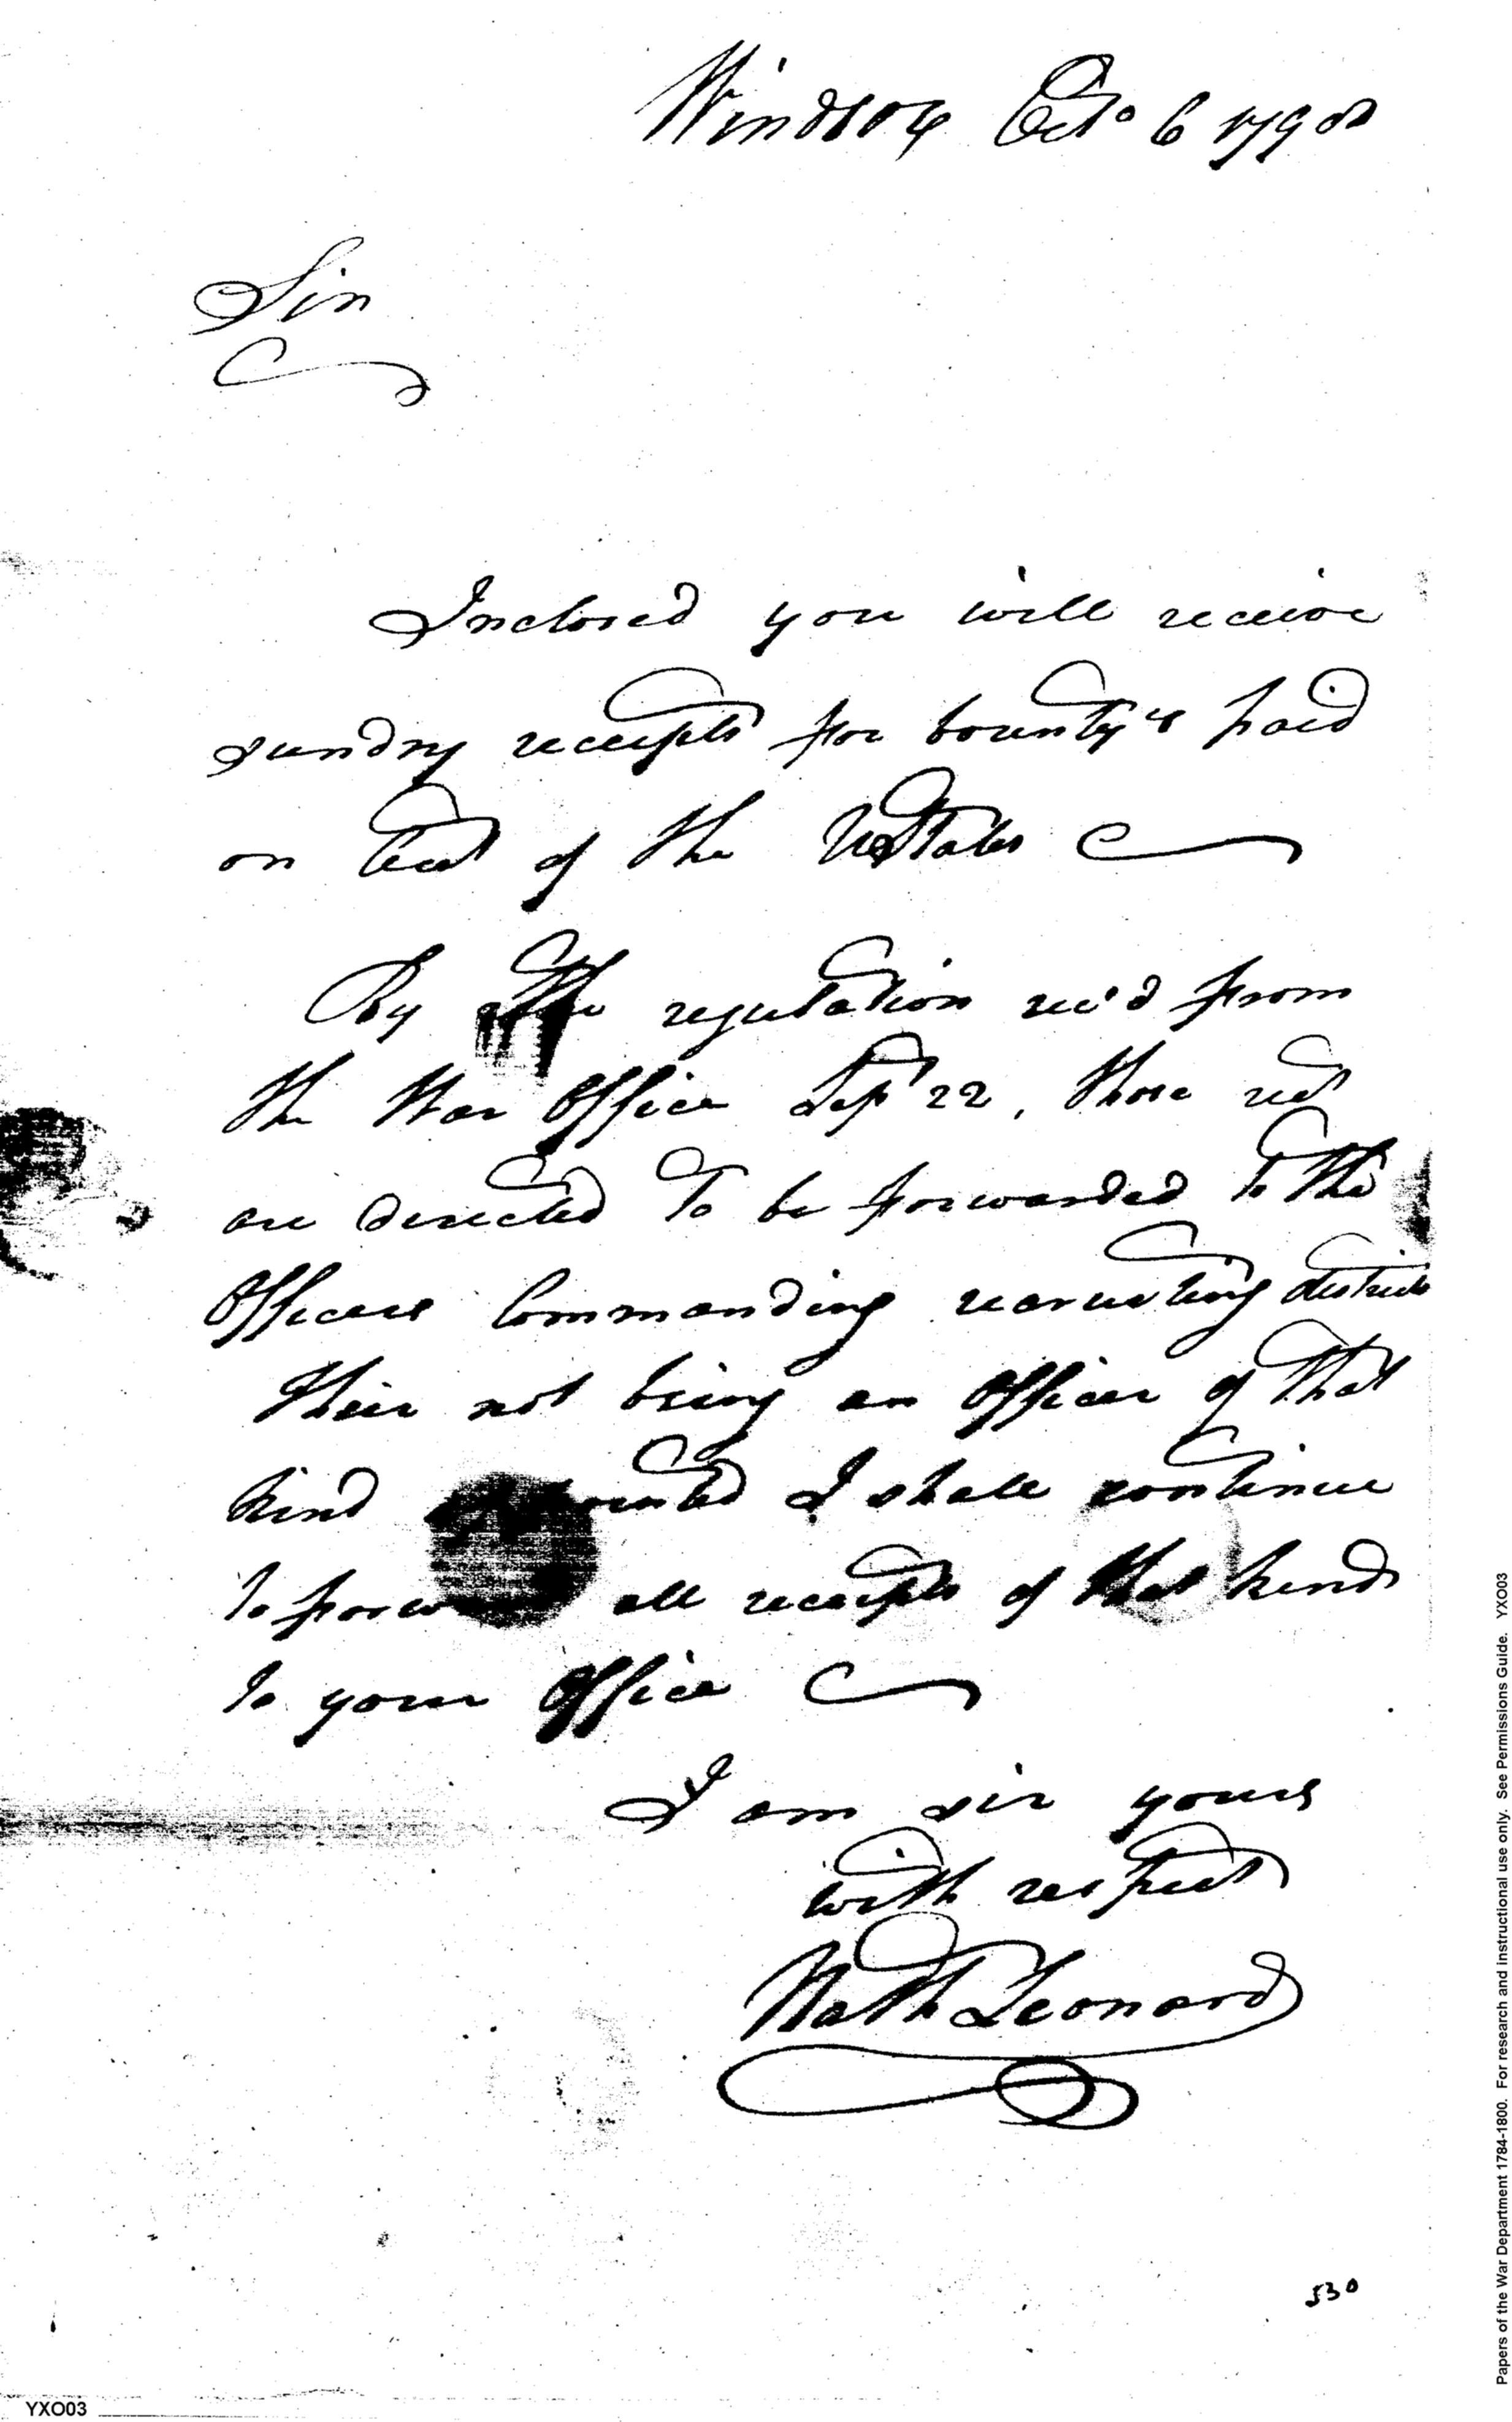 Windsor Octo 6 1798
Sir
Inclosed you will receive
sundry receipts for bounty's paid
on acct of the UStates
By the regulation rec'd from
the War Office Sept 22, those rect
are directed to be forwarded to the
Officers Commanding recruiting districts
their not being an Officer of that
kind appointed I shall continue
to forward all receipts of that kind
to your Office
I am sir yours
with respect
Nath Leonard
530
YXO03
Papers of the War Department 1784-1800. For research and instructional use only. See Permissions Guide. YXO03